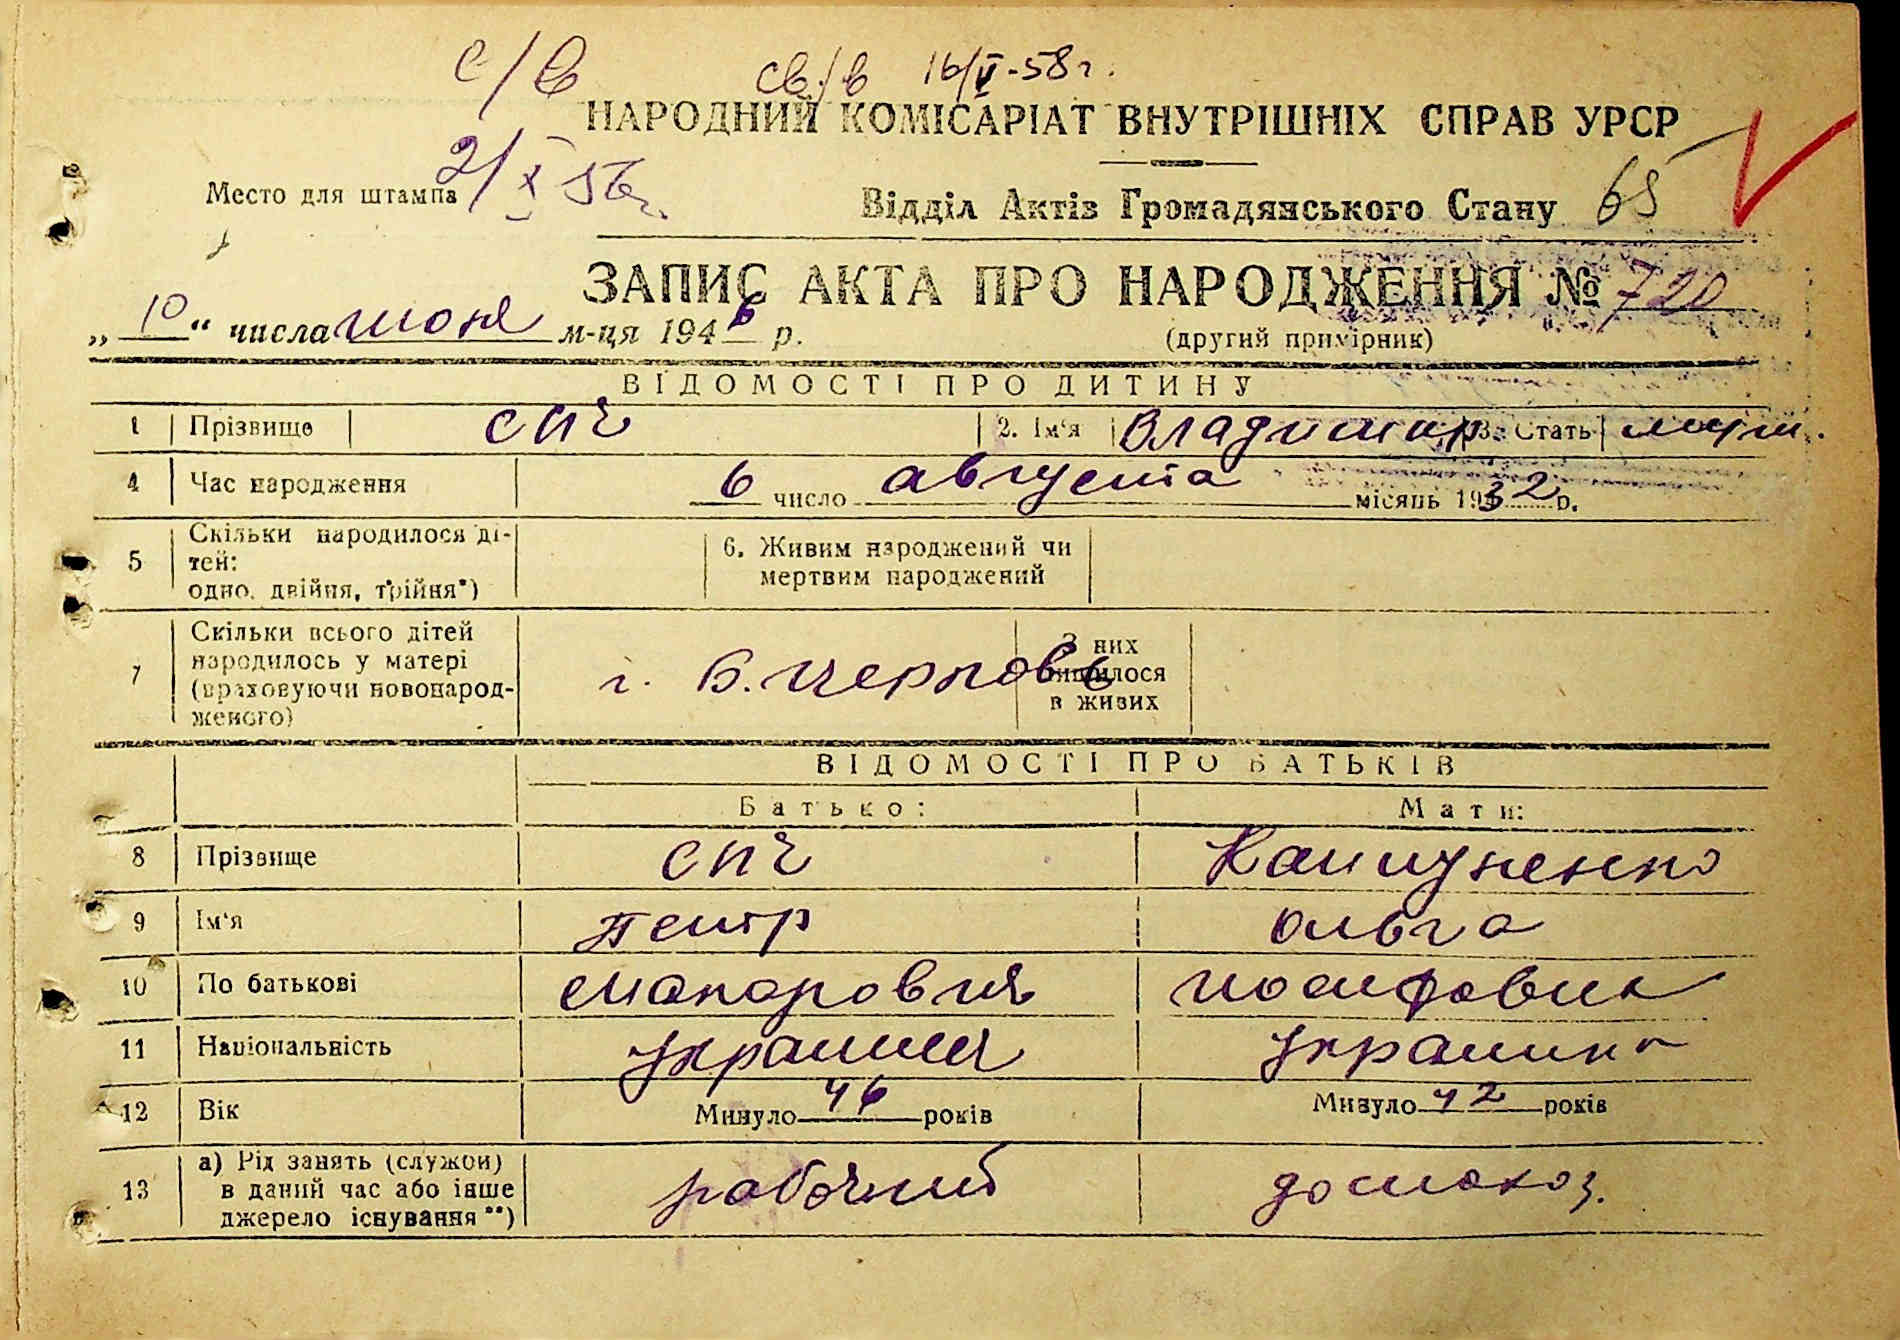 с/в
св./в 16/V-58г.
НАРОДНИЙ КОМІСАРІАТ ВНУТРІШНІХ СПРАВ УРСР
Место для штампа 2/X 56г.
Відділ Актів Громадянського Стану 65
ЗАПИС АКТА ПРО НАРОДЖЕННЯ № 720
„10“ числа июня м-ця 1946 р.
(другий примірник)
ВІДОМОСТІ ПРО ДИТИНУ
1 Прізвище Спч 2. Ім‘я Владимир 3. Стать муж.
4 Час народження 6 число августа місяць 1932 р.
5 Скільки народилося ді-
тей:
одно, двійня, трійня*)
6. Живим народжений чи
мертвим народжений
7 Скільки всього дітей
народилось у матері
(враховуючи новонарод-
женого)
г. Б. Церковь
З них
лишилося
в живих
ВІДОМОСТІ ПРО БАТЬКІВ
Батько: Мати:
8 Прізвище Спч
9 Ім‘я Петр Ольга
10 По батькові Макарович Иосифовна
11 Національність украинец украинка
12 Вік Минуло 46 років Минуло 42 років
13 а) Рід занять (служби)
в даний час або інше
джерело існування**)
рабочий домохоз.